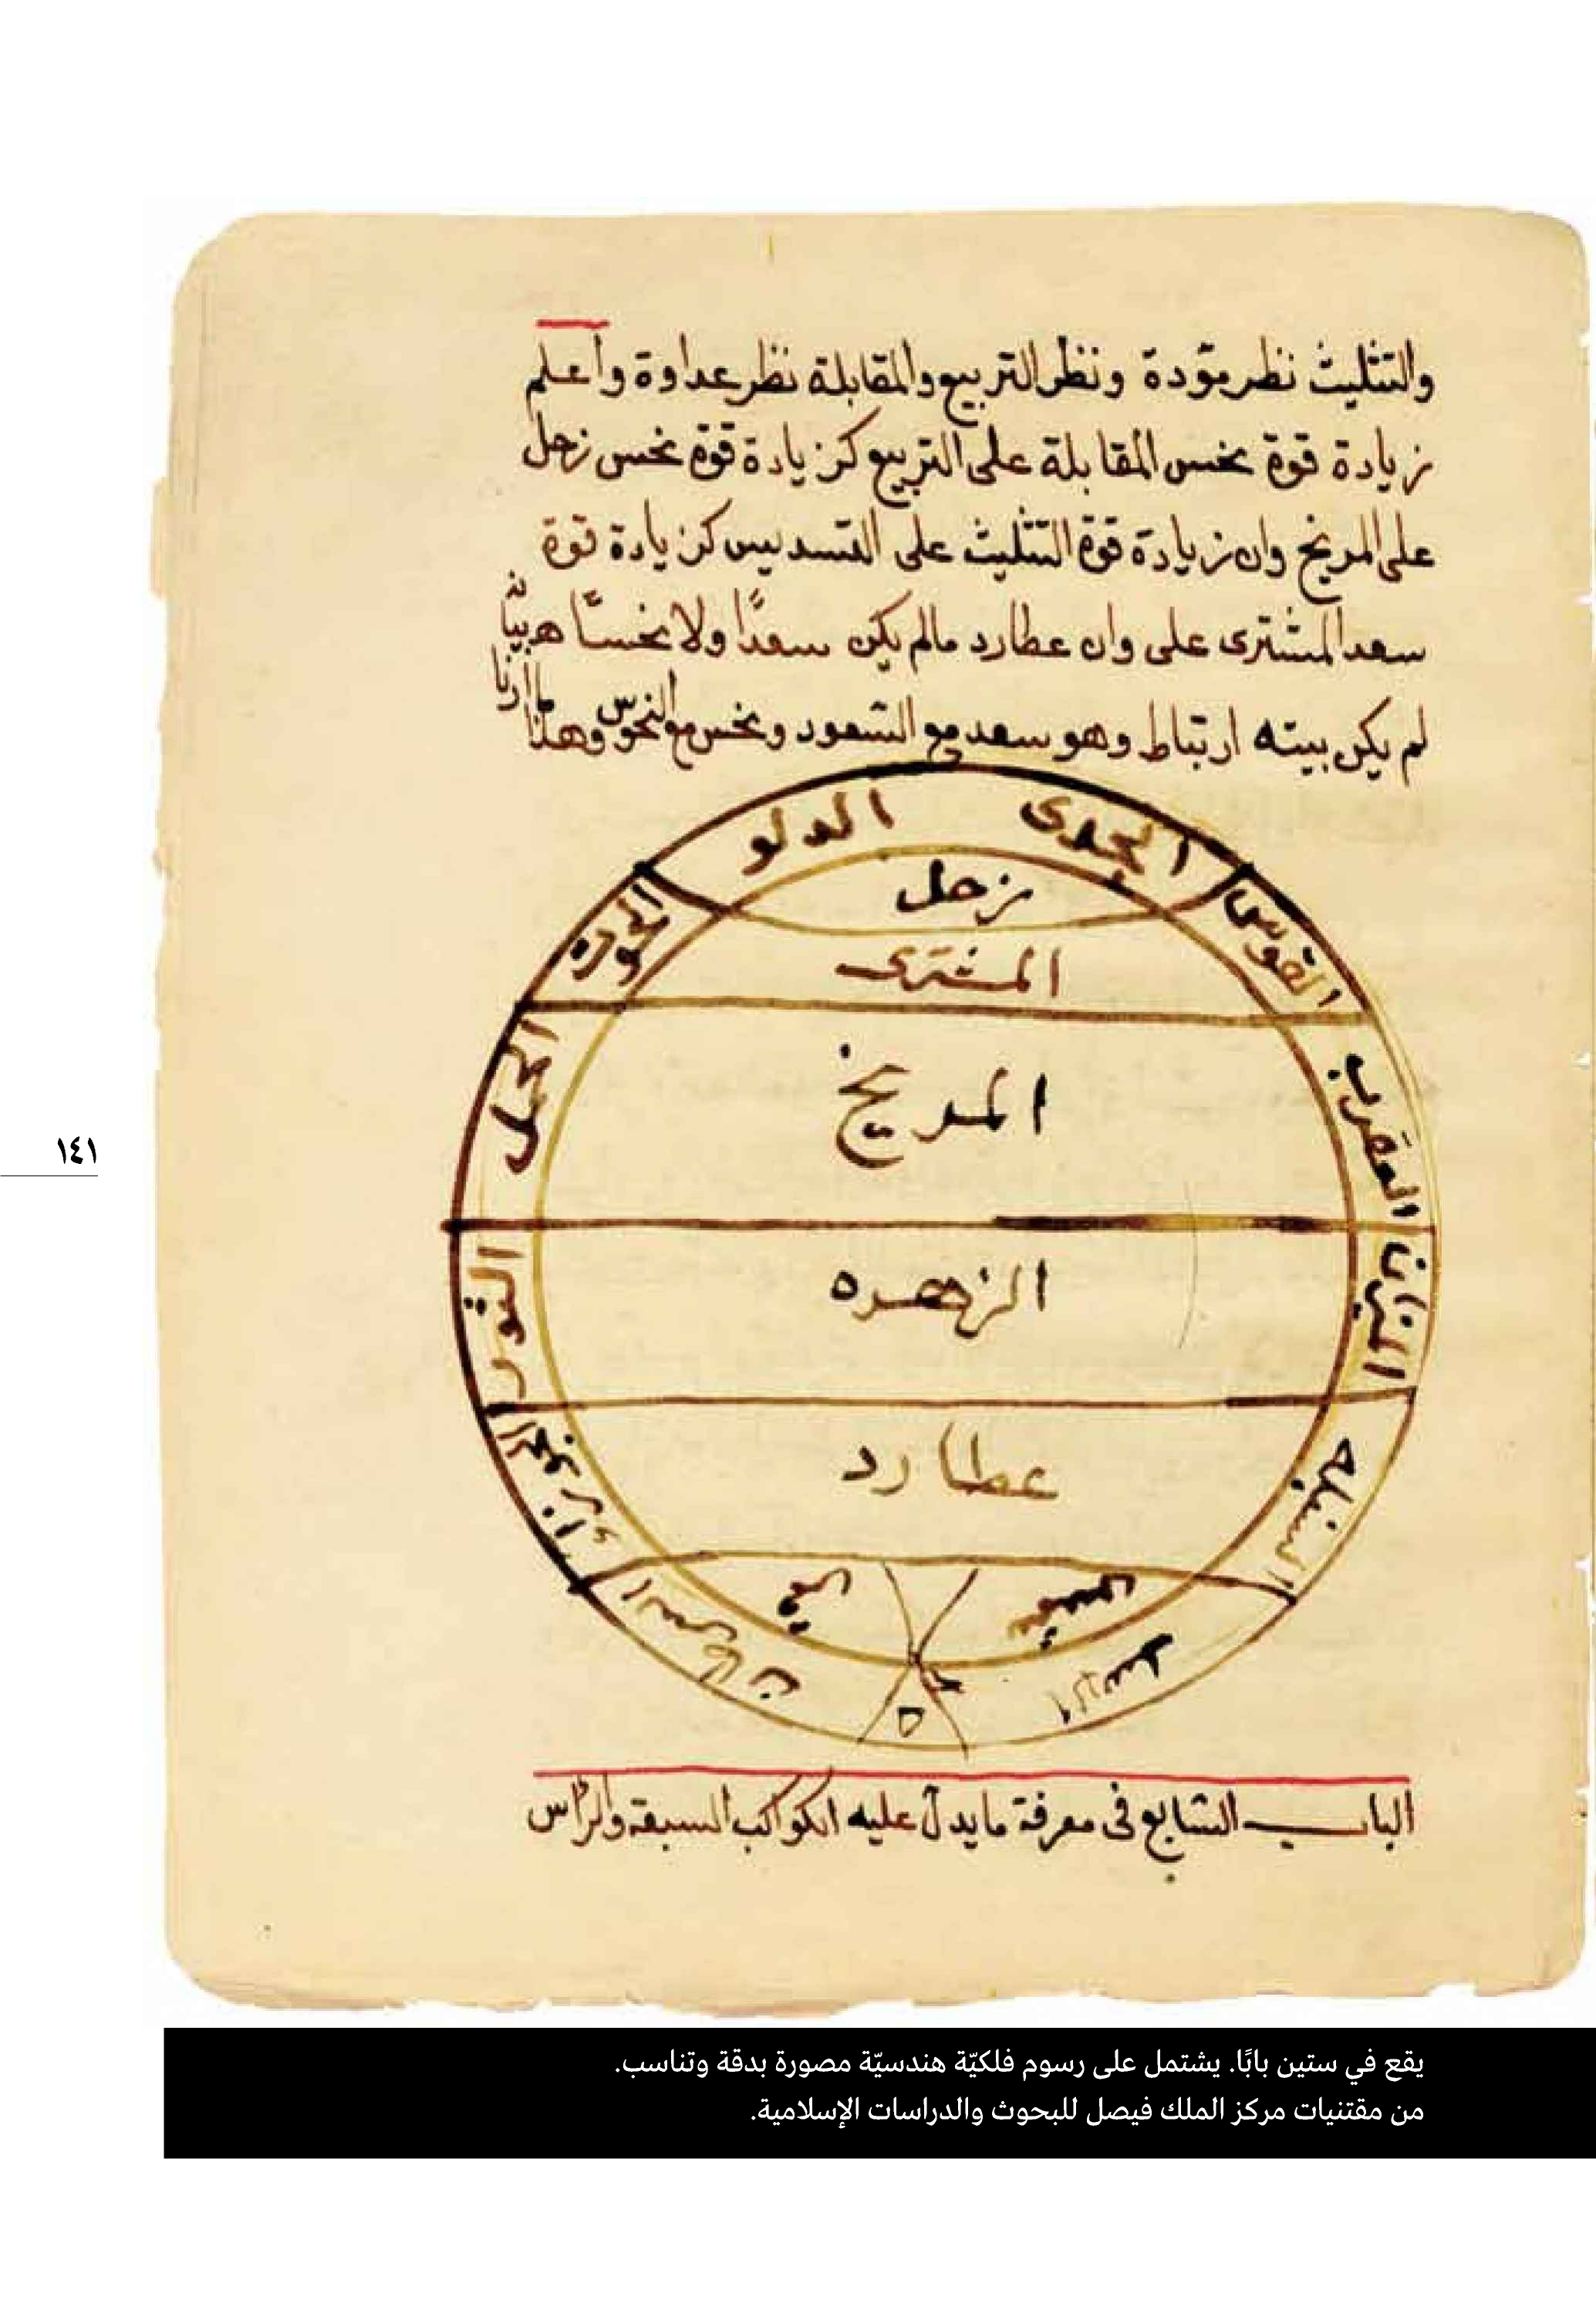 والتثليث نظر مودة ونظر التربيع والمقابلة نظر عداوة وأعلم
زيادة قوة نحس المقابلة على التربيع كزيادة قوة نحس زحل
على المريخ وان زيادة قوة التثليث على التسديس كزيادة قوة
سعد المشترى على وان عطارد مالم يكن سعدًا ولا نحسًا
لم يكن بينه ارتباط وهو سعد مع السعود ونحس مع النحوس وهذا
الجدى
الدلو
زحل
القوس
الحوت
المشترى
العقرب
الحمل
المريخ
الميزان
الثور
الزهره
السنبله
عطارد
شمس
السرطان
الاسد
الباب السابع فى معرفة مايدل عليه الكواكب السبعة والرأس
١٤١
يقع في ستين بابًا. يشتمل على رسوم فلكيّة هندسيّة مصورة بدقة وتناسب.
من مقتنيات مركز الملك فيصل للبحوث والدراسات الإسلامية.